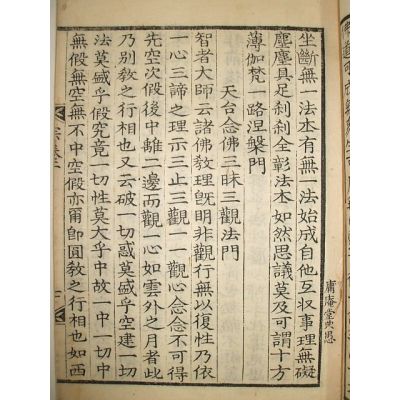 坐斷無一法本有無一法始成自他互収事理無礙
塵塵具足刹刹全彰法本如然思議莫及可謂十方
薄伽梵一路涅槃門
天台念佛三昧三觀法門
智者大師云諸佛教理旣明非觀行無以復性乃依
一心三諦之理示三止三觀一一觀心念念不可得
先空次假後中離二邊而觀一心如雲外之月者此
乃別教之行相也又云破一切惑莫盛乎空建一切
法莫盛乎假究竟一切性莫大乎中故一中一切中
無假無空無不中空假亦甬卽圓教之行相也如西
庸庵堂